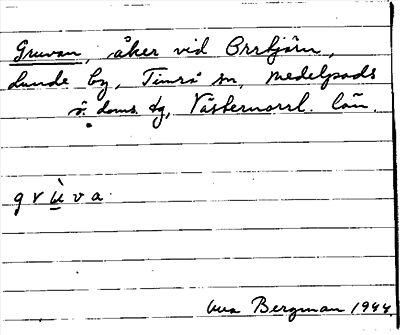 Gruvan, åker vid Orrbjörn,
Lunde by, Timrå sn, Medelpads
ö. doms. tg, Västernorrl. län.
g r ù v a
Bergman 1944.